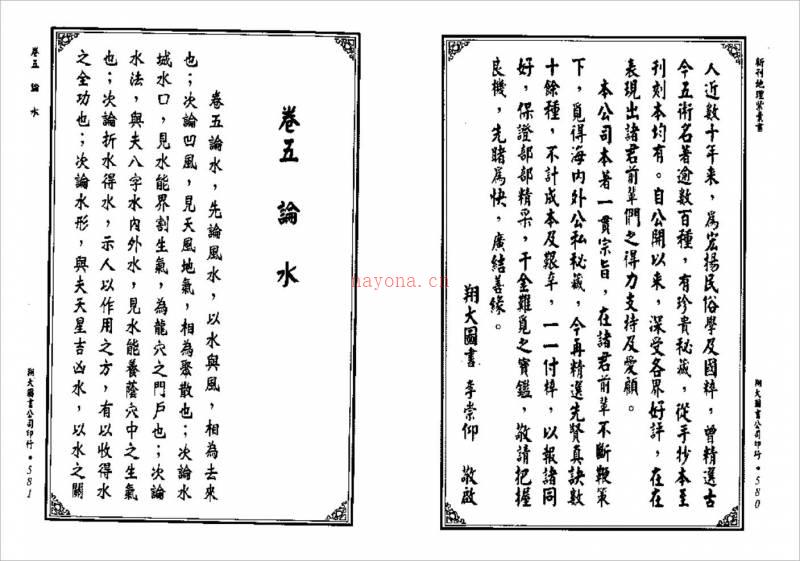 新刊地理紫囊書
人近數十年來，為宏揚民俗學及國粹，曾精選古
今五術名著逾數百種，有珍貴秘藏，從手抄本至
刊刻本均有。自公開以來，深受各界好評，在在
表現出諸君前輩們之得力支持及愛顧。
本公司本著一貫宗旨，在諸君前輩不斷鞭策
下，覓得海內外公私秘藏，今再精選先賢真訣數
十餘種，不計成本及艱辛，一一付梓，以報諸同
好，保證部部精采，千金難覓之寶鑑，敬請把握
良機，先睹為快，廣結善緣。
翔大圖書 李崇仰 敬啟
翔大圖書公司印行•580
卷五 論水
卷五論水，先論風水，以水與風，相為去來
也；次論凹風，見天風地氣，相為聚散也；次論水
城水口，見水能界割生氣，為龍穴之門戶也；次論
水法，與夫八字水內外水，見水能養蔭穴中之生氣
也；次論折水得水，示人以作用之方，有以收得水
之全功也；次論水形，與夫天星吉凶水，以水之關
卷五 論水
翔大圖書公司印行•581
hayona.cn